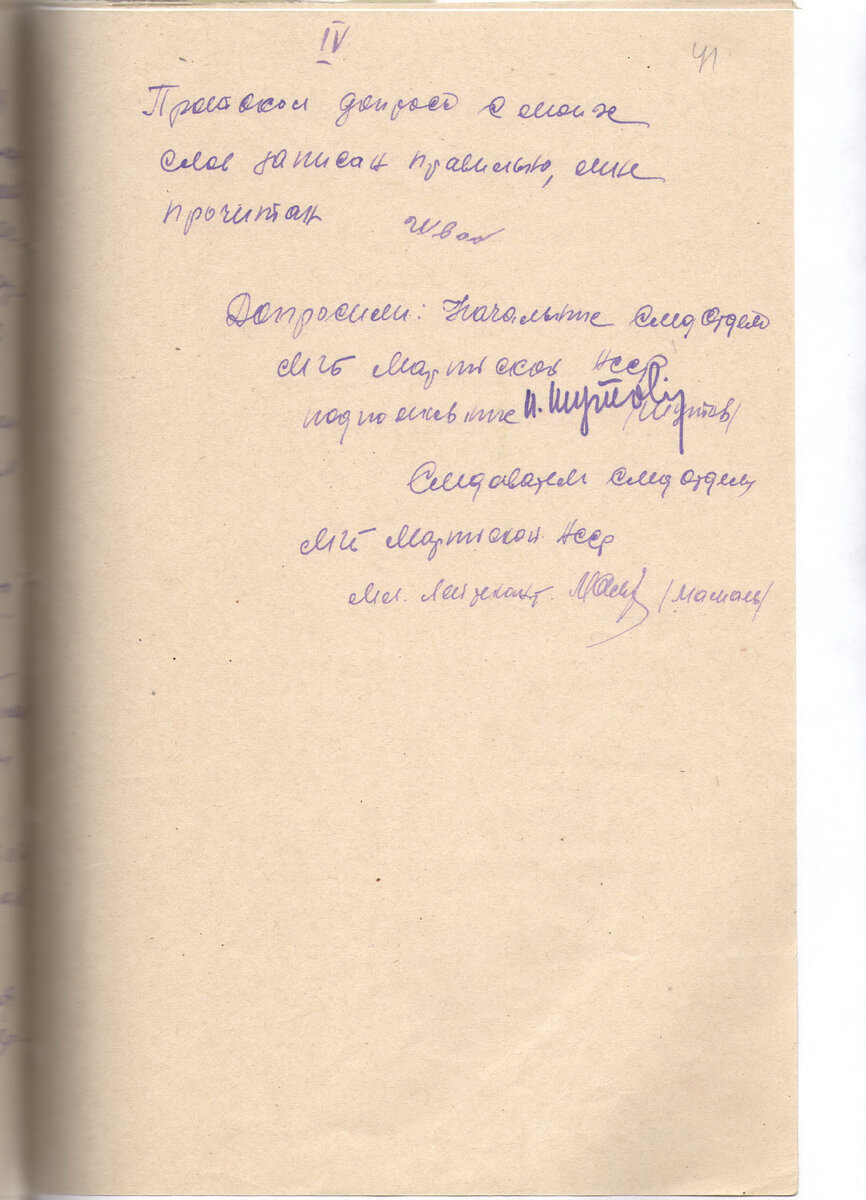 IV
41
Протокол допроса с моих
слов записан правильно, мне
прочитан
Допросили: Начальник следотдела
МГБ Марийской АССР
подполковник П. Шутов /Шутов/
Следователь следотдела
МГБ Марийской АССР
мл. лейтенант